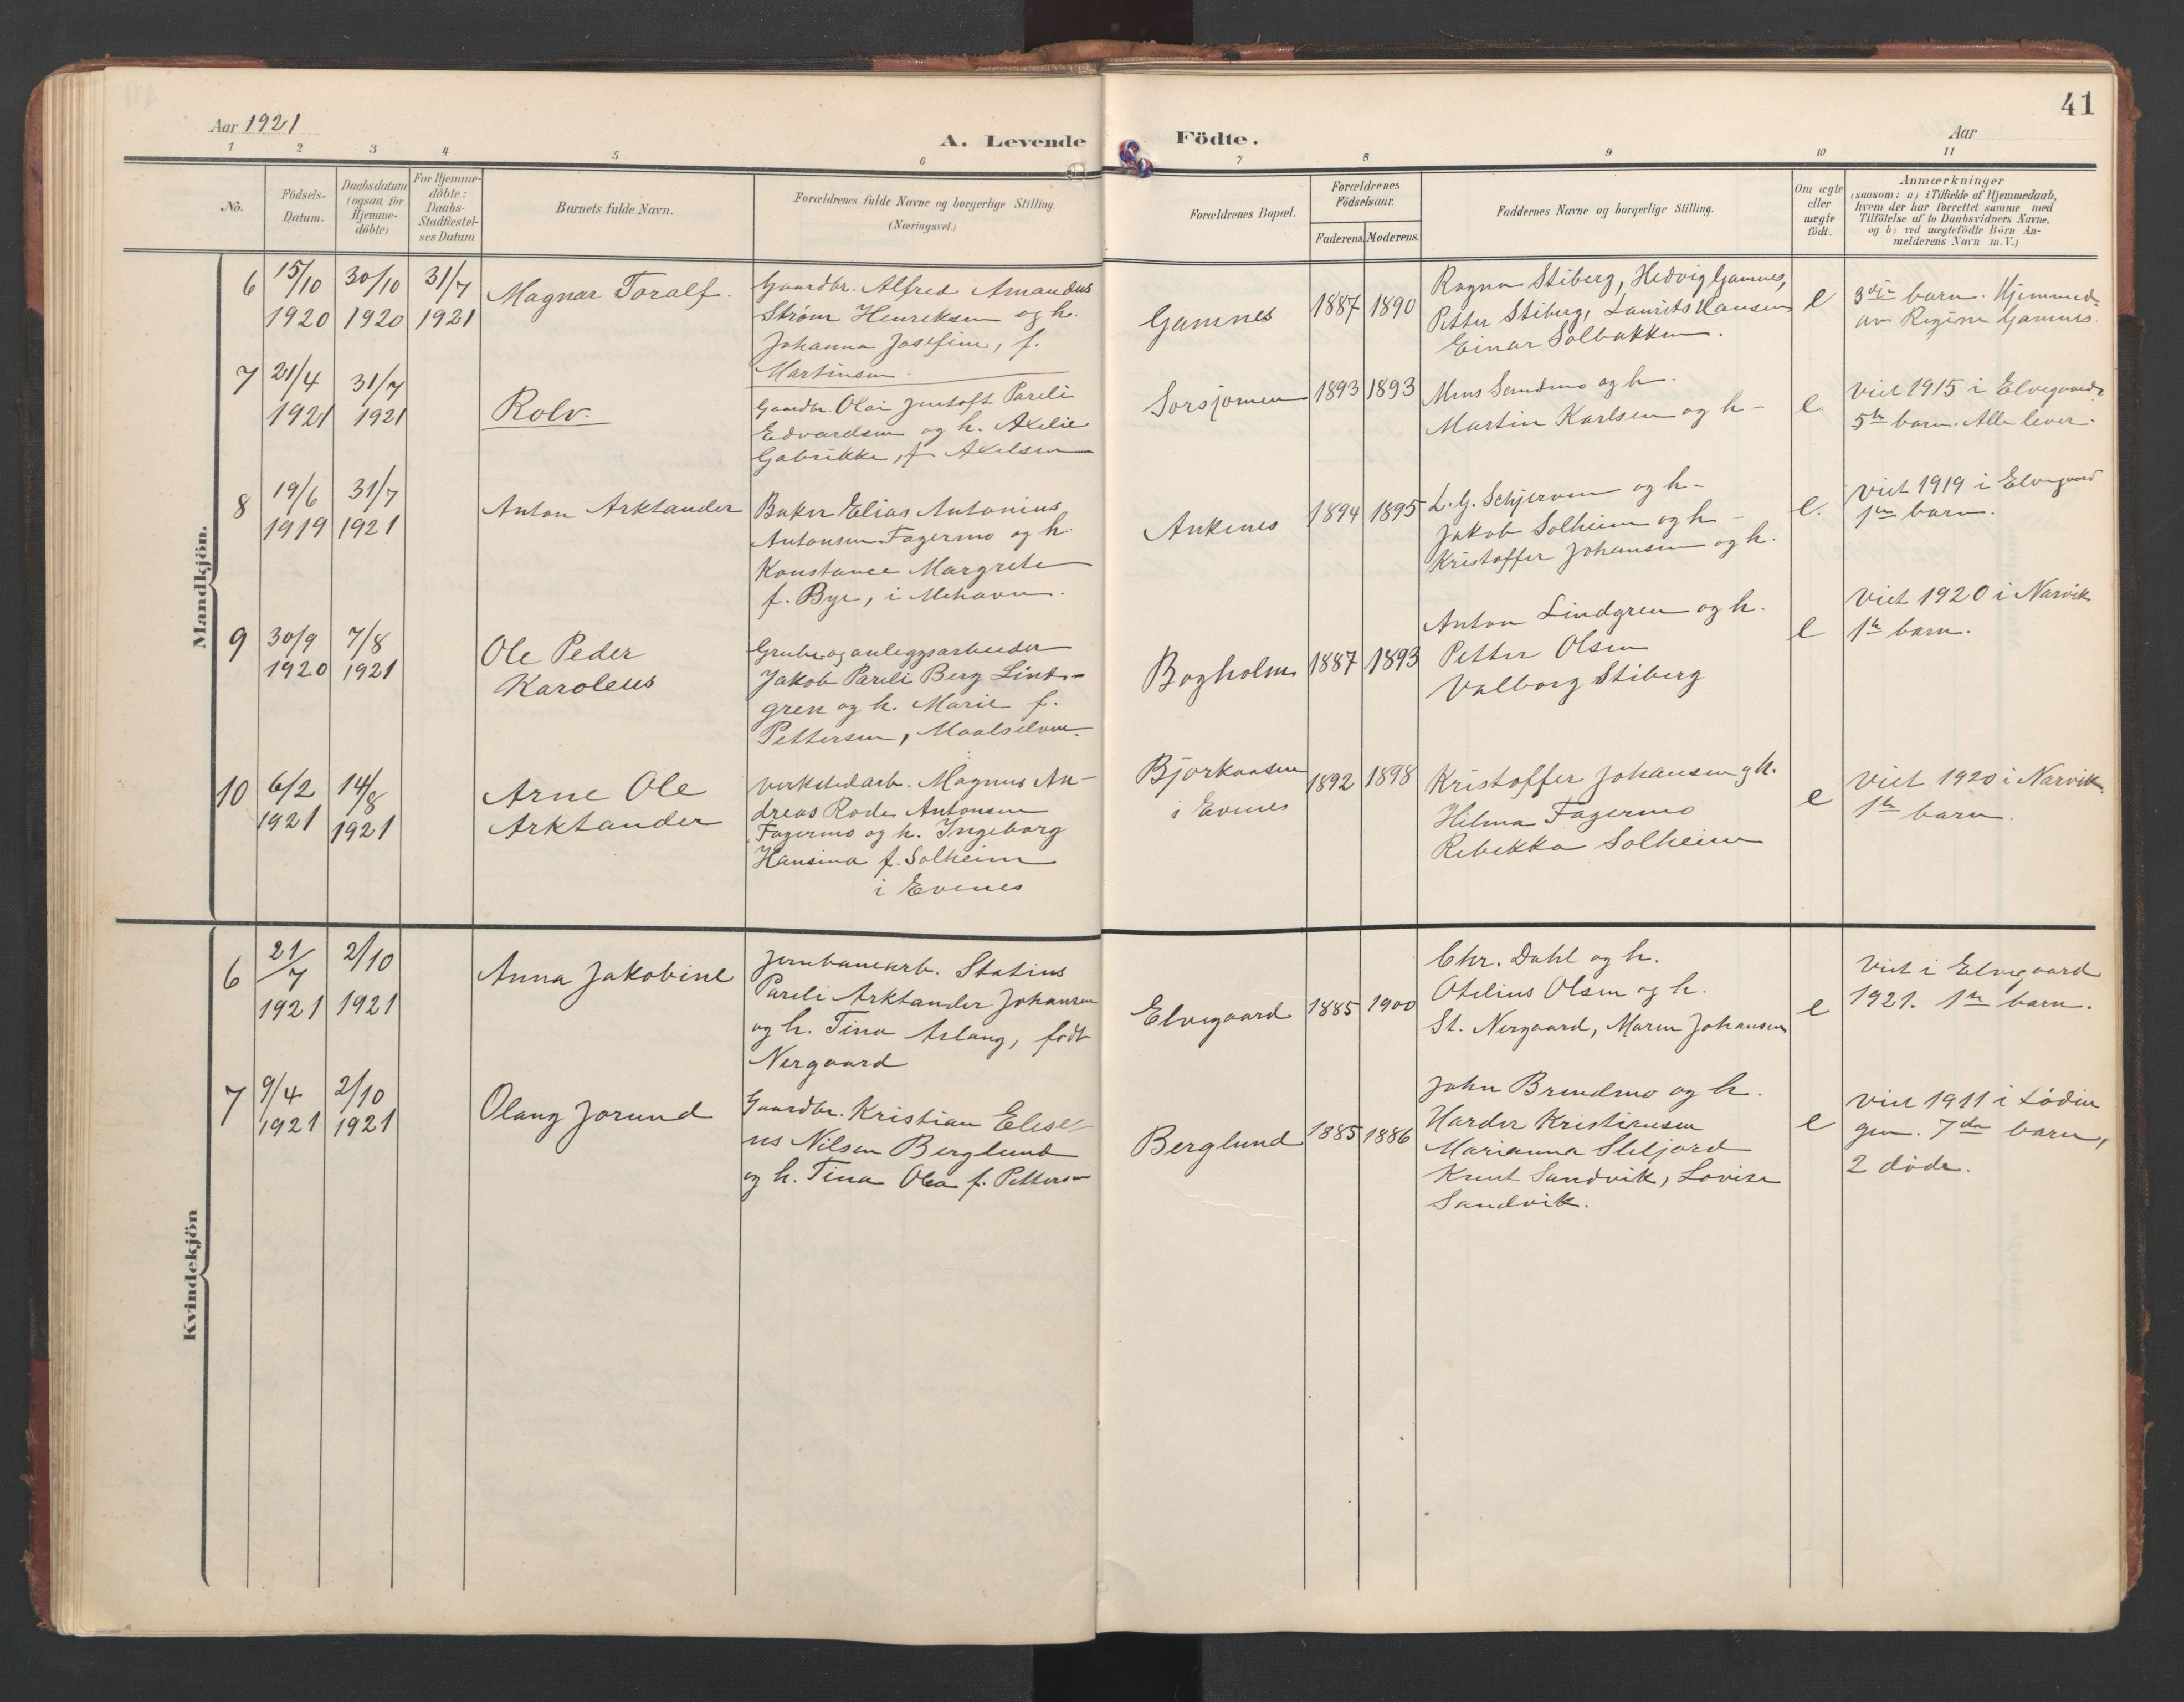 41
Aar 1921
A. Levende Födte.
Aar
1 2 3 4 5 6 7 8 9 10 11
No.
Födsels-
Datum.
Daabsdatum
(ogsaa for
Hjemme-
döbte)
For Hjemme-
döbte:
Daabs-
Stadfæstel-
ses Datum
Barnets fulde Navn.
Forældrenes fulde Navne og borgerlige Stilling.
(Næringsvei.)
Forældrenes Bopæl.
Forældrenes
Födselsaar.
Faderens. Moderens.
Faddernes Navne og borgerlige Stilling.
Om ægte
eller
uægte
födt.
Anmærkninger
(saasom: a) i Tilfælde af Hjemmedaab,
hvem der har forrettet samme med
Tilföielse af to Daabsvidners Navne.
og b) ved uægtefödte Börn An-
melderens Navn m. V.)
Mandkjön.
6
15/10
1920
30/10
1920
31/7
1921
Magnar Toralf.
Gaardbr. Alfred Amandus
Strøm Henriksen og h.
Johanna Josefine, f.
Martinsen.
Gamnes
1887
1890
Ragna Stiberg, Hedvig Gamnes,
Petter Stiberg, Laurits Hansen
Einar Solbakken.
e
3dje barn. Hjemmed.
av Regine Gamnes.
7
21/4
1921
31/7
1921
Rolv.
Gaardbr. Olai Jentoft Pareli
Edvardsen og h. Axelie
Gabrikke, f. Axelsen
Sorsjomen
1893
1893
Mons Sandmo og h.
Martin Karlsen og h-
e
Viet 1915 i Elvegaard
5te barn. Alle lever.
8
19/6
1919
31/7
1921
Anton Arktander
Baker Elias Antonius
Antonsen Fagermo og h.
Konstance Margrete
f. Bye, i Mehavn.
Ankenes
1894
1895
L. G. Schjerven og h-
Jakob Solheim og h-
Kristoffer Johansen og h.
e.
Viet 1919 i Elvegaard
1te barn.
9
30/9
1920
7/8
1921
Ole Peder
Karoleus
Grube og anleggsarbeider
Jakob Pareli Berg Lind-
gren og h. Marie f.
Pettersen, Maalselven.
Bogholm
1887
1893
Anton Lindgren og h.
Petter Olsen
Valborg Stiberg
e
Viet 1920 i Narvik
1te barn.
10
6/2
1921
14/8
1921
Arne Ole
Arktander
Verkstedarb. Magnus An-
dreas Rode Antonsen
Fagermo og h. Ingeborg
Hansina f. Solheim
i Evenes
Bjorkaasen
i Evenes
1892
1898
Kristoffer Johansen og h.
Hilma Fagermo
Rebekka Solheim
e
Viet 1920 i Narvik
1te barn.
Kvindekjön
6
21/7
1921
2/10
1921
Anna Jakobine
Jernbanearb. Statius
Pareli Arktander Johansen
og h. Tina Aslaug, født
Nergaard
Elvegaard
1885
1900
Chr. Dahl og h.
Otelius Olsen og h.
St. Nergaard, Maren Johansen
e
Viet i Elvegaard
1921. 1te barn.
7
9/4
1921
2/10
1921
Olaug Jorund
Gaardbr. Kristian Elise-
us Nilsen Berglund
og h. Tina Olea f. Pettersen
Berglund
1885
1886
John Brendmo og h.
Harder Kristiansen
Marianna Skjord
Knut Sandvik, Lovise
Sandvik.
e
Viet 1911 i Lødin
gen. 7de barn,
2 døde.